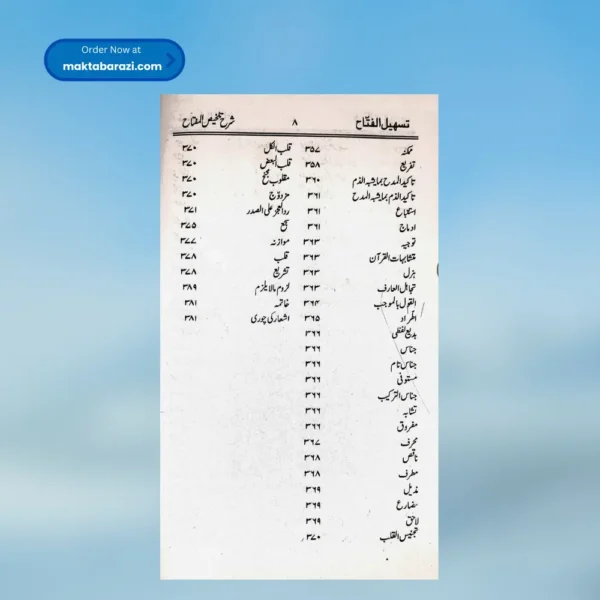 Order Now at
maktabarazi.com
تسهیل الفتّاح ۸ شرح تلخیص المفتاح
ممکنہ ۳۵۷
تفریع ۳۵۸
تاکید المدح بما یشبہ الذم ۳۶۰
تاکید الذم بما یشبہ المدح ۳۶۱
استتباع ۳۶۱
ادماج ۳۶۱
توجیہ ۳۶۳
متشابہات القرآن ۳۶۳
ہزل ۳۶۳
تجاہل العارف ۳۶۳
القول بالموجب ۳۶۴
اطراد ۳۶۵
بدیع لفظی ۳۶۶
جناس ۳۶۶
جناس تام ۳۶۶
مستوفی ۳۶۶
جناس الترکیب ۳۶۶
تشابہ ۳۶۶
مفروق ۳۶۶
محرف ۳۶۷
ناقص ۳۶۸
مطرف ۳۶۸
مذیل ۳۶۹
مضارع ۳۶۹
لاحق ۳۶۹
تجنیس القلب ۳۷۰
قلب الکل ۳۷۰
قلب البعض ۳۷۰
مقلوب مجنح ۳۷۰
مزدوج ۳۷۰
رد العجز علی الصدر ۳۷۱
سجع ۳۷۵
موازنہ ۳۷۷
قلب ۳۷۸
تشریع ۳۷۸
لزوم مالا یلزم ۳۸۹
خاتمہ ۳۸۱
اشعار کی چوری ۳۸۱